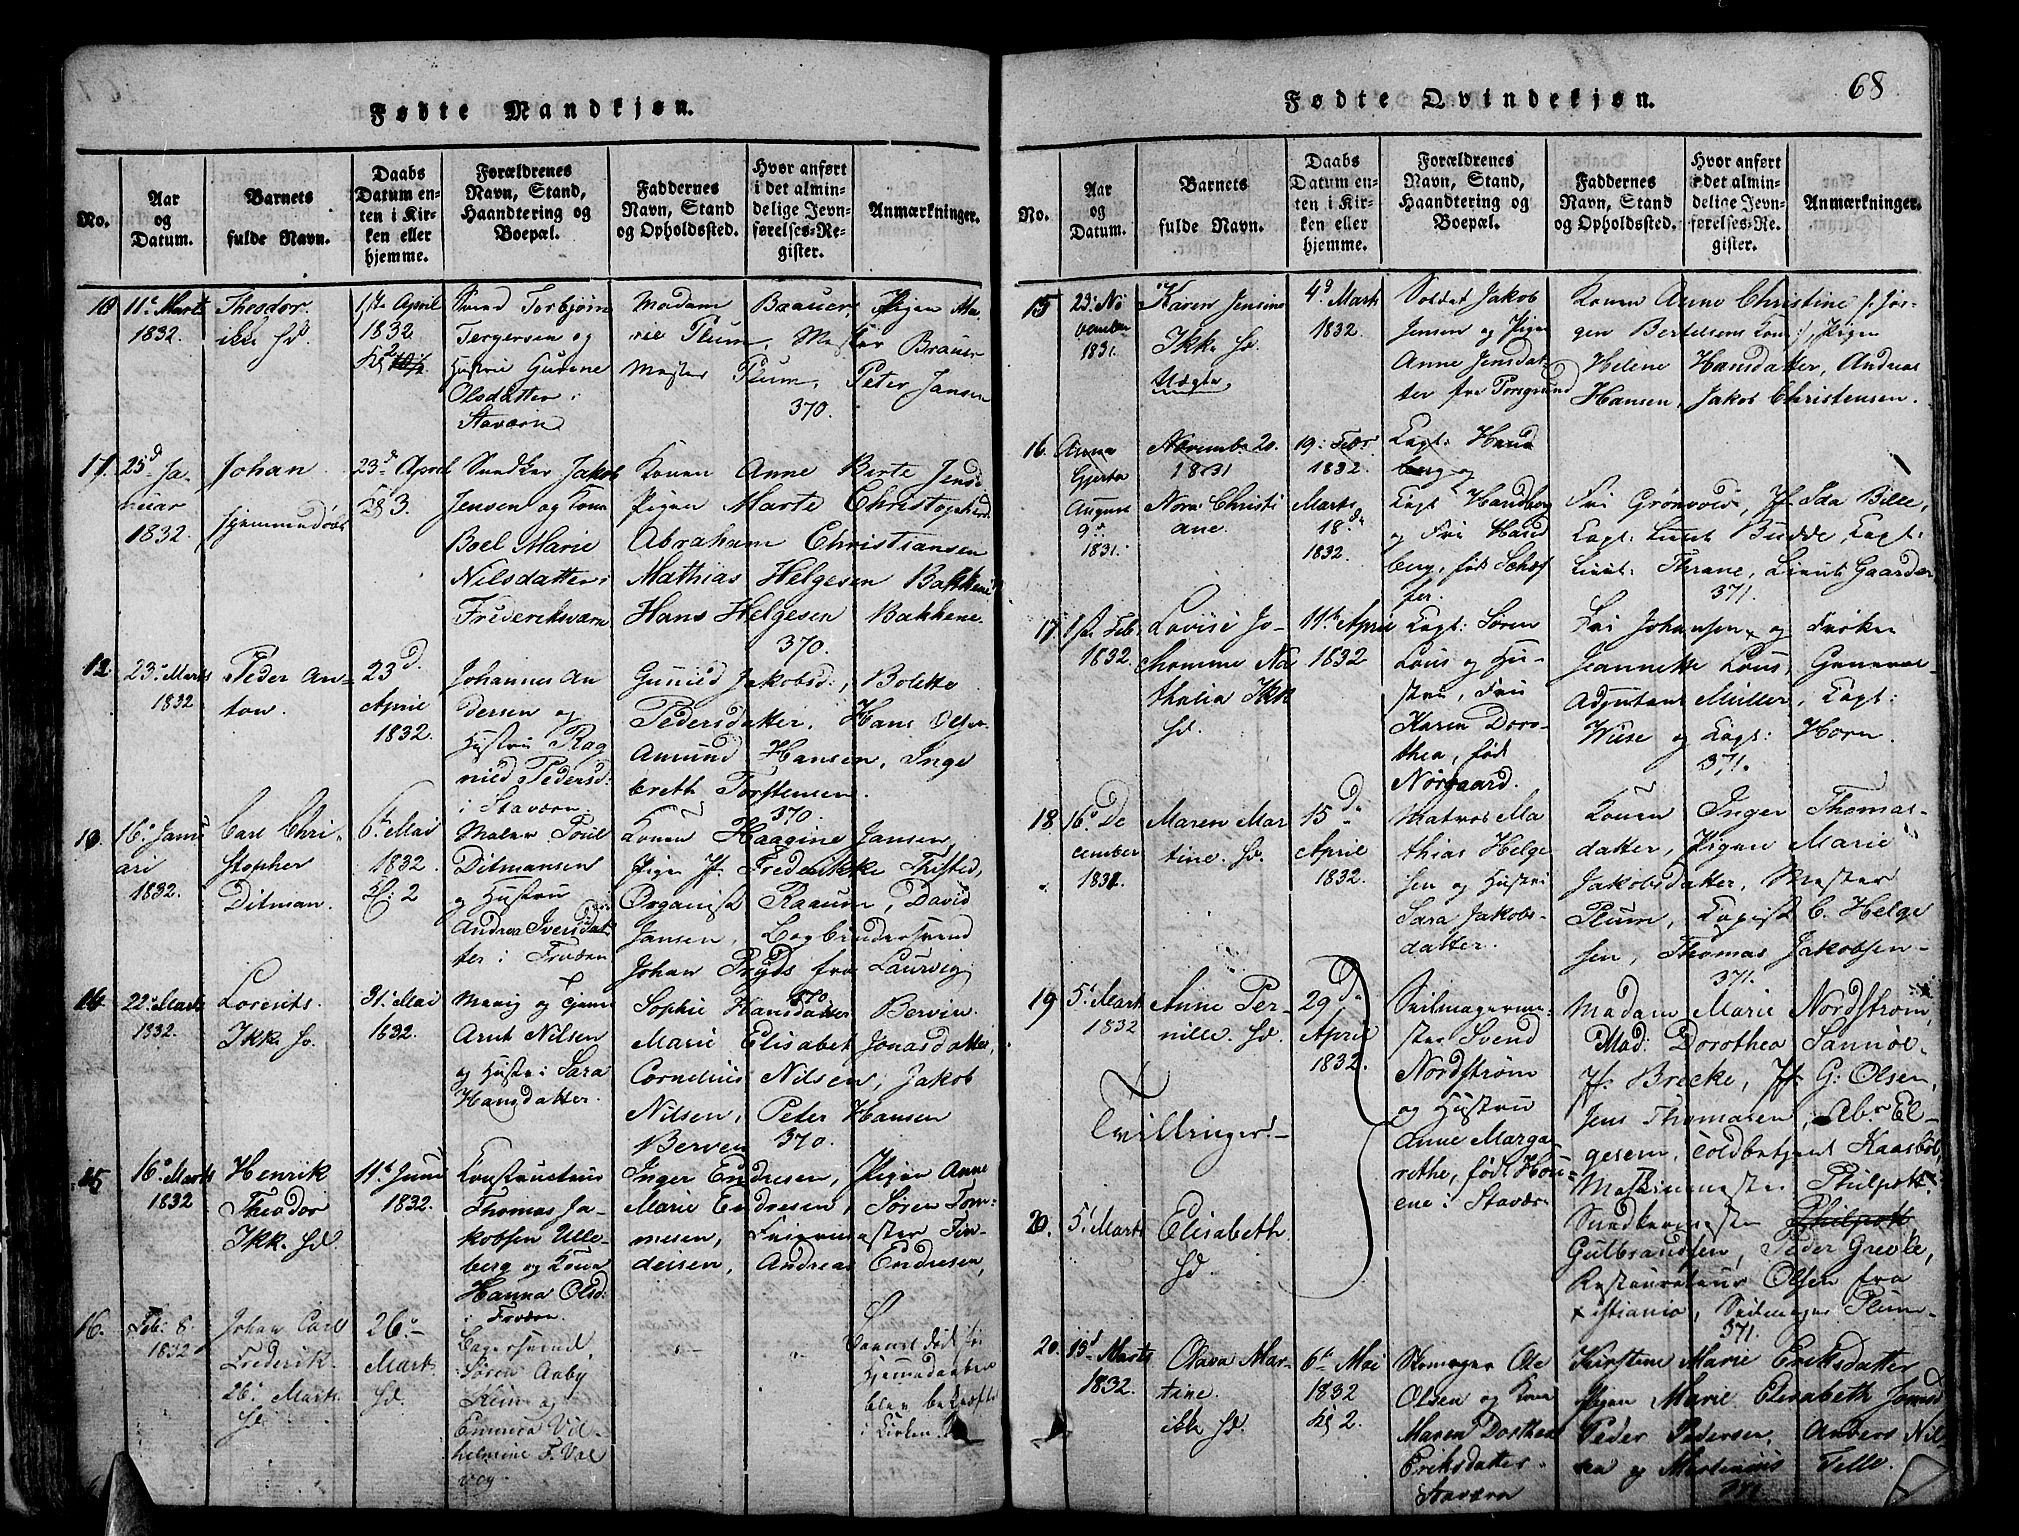 68
Fødte Mandkjøn.
No.
Aar
og
Datum.
Barnets
fulde Navn.
Daabs
Datum en-
ten i Kir-
ken eller
hjemme.
Forældrenes
Navn, Stand,
Haandtering og
Boepæl.
Faddernes
Navn, Stand
og Opholdssted.
Hvor anført
i det almin-
delige Jevn-
førelses-Re-
gister.
Anmærkninger.
11te Marts
1832.
Theodor
ikke hd.
1ste April
1832
Svend Torbjørn
Tergersen og
Hustru Gurine
Olsdatter i
Staværn
Madam Baauer, Pigen Ma-
rie Plum, Mester Brauer
Mester Plum, Peter Jansen
370.
25d Ja-
nuar
1832.
Johan
hjemmedøbt
23d April
Kl 3.
Jakob
Jensen og Kone
Boel Marie
Nilsdatter i
Frederiksværn
Konen Anne Birte Jensd
Pigen Marte Christophersd
Abraham Christiansen
Mathias Helgesen Bakkene
Hans Helgesen Bakkene
370.
12.
23de Marts
1832
Peder An-
ton.
23d
April
1832.
Johannes An
dersen og
Hustru Rag
nild Pedersd
i Staværn
Gunild Jakobsd:, Bolette
Pedersdatter, Hans Olsen
Amund Hansen, Inge
brett Torstensen
370.
13
16de Janu
ari
1832.
Carl Chri-
stopher
Ditman.
6te Mai
1832.
Kl: 2
Maler Poul
Ditmansen
og Hustru
Andrea Iversdat
ter i Fværn
Konen Haagine Jansen,
Pigen Jf. Frederikke Thisted,
Organist Raaum, David
Jansen, Bogbindersvend
Johan Pryds fra Laurvig
370
14
22de Marts
1832.
Lorents.
Ikk. hd.
31te Mai
1832.
Arnt Nilsen
og Hustru Sara
Hansdatter.
Sophie Hansdatter Berven
Marie Elisabet Jonasdatter,
Cornelius Nilsen, Jakob
Nilsen, Peter Hansen
Berven 370.
15
16de Marts
1832
Henrik
Theodor
Ikk. hd.
11te Juni
1832.
Thomas Ja-
kobsen Ulle-
berg og Kone
Hanna Olsd
i Fværn
Inger Endresen, Pigen Anne
Marie Endresen, Søren Tom-
mesen, Feiermester Fin-
deisen, Andreas Endresen,
16.
Feb: 8.
1832
Johan Carl
Frederik
26de Marts
hd.
26de
Marts
hd.
Bagersvend,
Søren Aaby
Klim og
Emmica Vil-
helmine F. Val
i Kirken.
Fødte Qvindekjøn.
No.
Aar
og
Datum.
Barnets
fulde Navn.
Daabs
Datum en-
ten i Kir-
ken eller
hjemme.
Forældrenes
Navn, Stand,
Haandtering og
Boepæl.
Faddernes
Navn, Stand
og Opholdssted.
Hvor anført
i det almin-
delige Jevn-
førelses-Re-
gister.
Anmærkninger.
15
23de No
vember
1831.
Karen Jensine
Ikke hd.
Uægte
4d Marts
1832.
Soldat Jakob
Jensen og Pigen
Anne Jensdat-
ter fra Porsgrund
Konen Anne Christine f. Jør-
gen Bertelsens Kone, Pigen
Helene Hansdatter, Andreas
Hansen, Jakob Christensen.
16.
Anna
Gjerta
August
9de
1831.
November 20.
1831
Nora Christi
ane.
19: Febr
1832.
Marts
18de
1832.
Capt: Hand
berg og
Capt Handberg
og Fru Hand
berg, født Schøf
fer.
Fru Grønvold, Jf. Ida Bille,
Capt: Lieut Budde, Capt:
Lieut: Thrane, Lieut: Gaarder
371.
17
1ste Feb:
1832.
Lovise Jo-
hanne Na
thalia Ikke
hd.
11te April
1832
Capt: Søren
Lous og Hu-
stru, Fru
Karen Doro-
thea, født
Nørgaard.
Fru Johansen og Frøken
Jeannette Lous, General-
Adjutant Müller, Capt:
Wiese og Capt: Horn.
371.
18
16de De
cember
1831.
Maren Mar
tine. hd.
15de
April
1832.
Matros Ma
thias Helge
sen og Hustru
Sara Jakobs-
datter.
Konen Inger Thomas-
datter, Pigen Marie
Jakobsdatter, Mester
Plum, Copist C. Helge
sen, Thomas Jakobsen
371.
19
5te Marts
1832
Anne Per-
nille. hd.
29de
April
1832.
Tvillinger.
Seilmagerme-
ster Svend
Nordstrøm
og Hustru
Anne Marga-
rethe, født Hou-
ene i Stavær
Madam Marie Nordstrøm,
Mad: Dorothea Sannøe-
Jf. Brecke, Jf. G: Olsen,
Jens Thomasen, Abr. El-
gesem, Toldbetjent Kaasbøl
Maskinmester Philpott
20.
5te Marts
Elisabeth.
hd.
Philpott
Gulbrandsen, Peder Grevle,
Restaurateur Olsen fra
Xstiania, Seilmager Plum-
371.
20.
13d Marts
1832.
Olava Mar-
tine.
ikke hd.
6te Mai
1832
Kl 2.
Skomager Ole
Olsen og Kone
Maren Dorthea
Eriksdatter
Staværn
Kirstine Marie Eriksdatter
Pigen Marie Elisabeth Jonsd
Peder Pedersen, Anders Nil
sen og Martenius Telle.
371